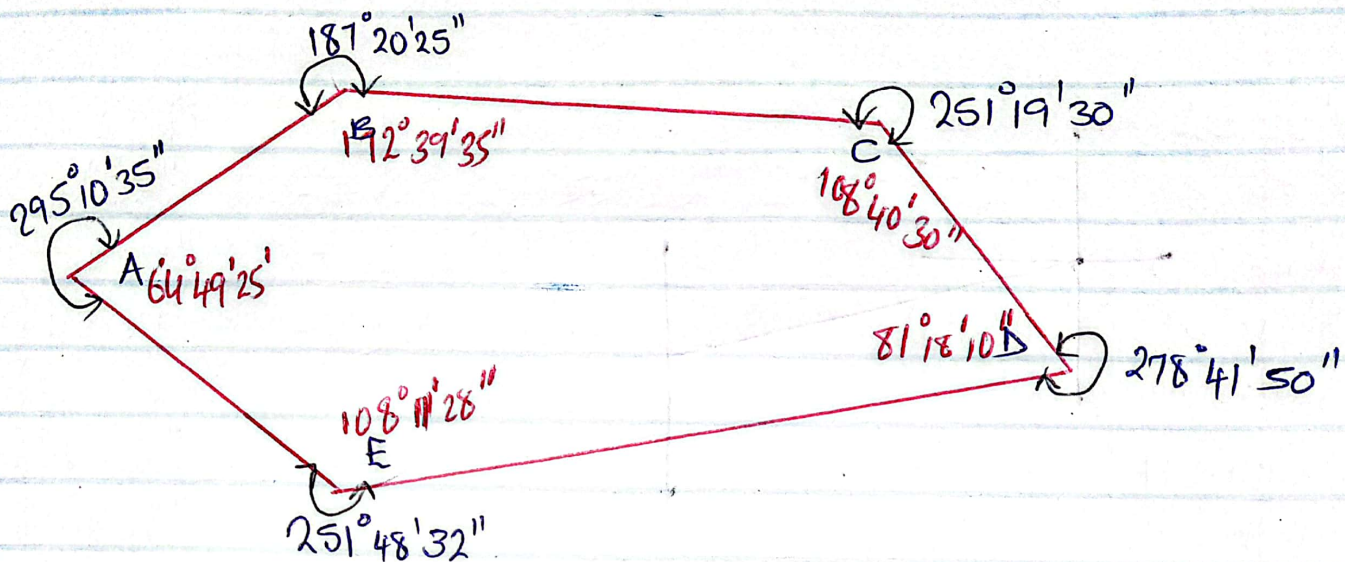 187°20'25"
B
192°39'35"
251°19'30"
C
108°40'30"
295°10'35"
A
64°49'25'
81°18'10"
D
278°41'50"
108°11'28"
E
251°48'32"